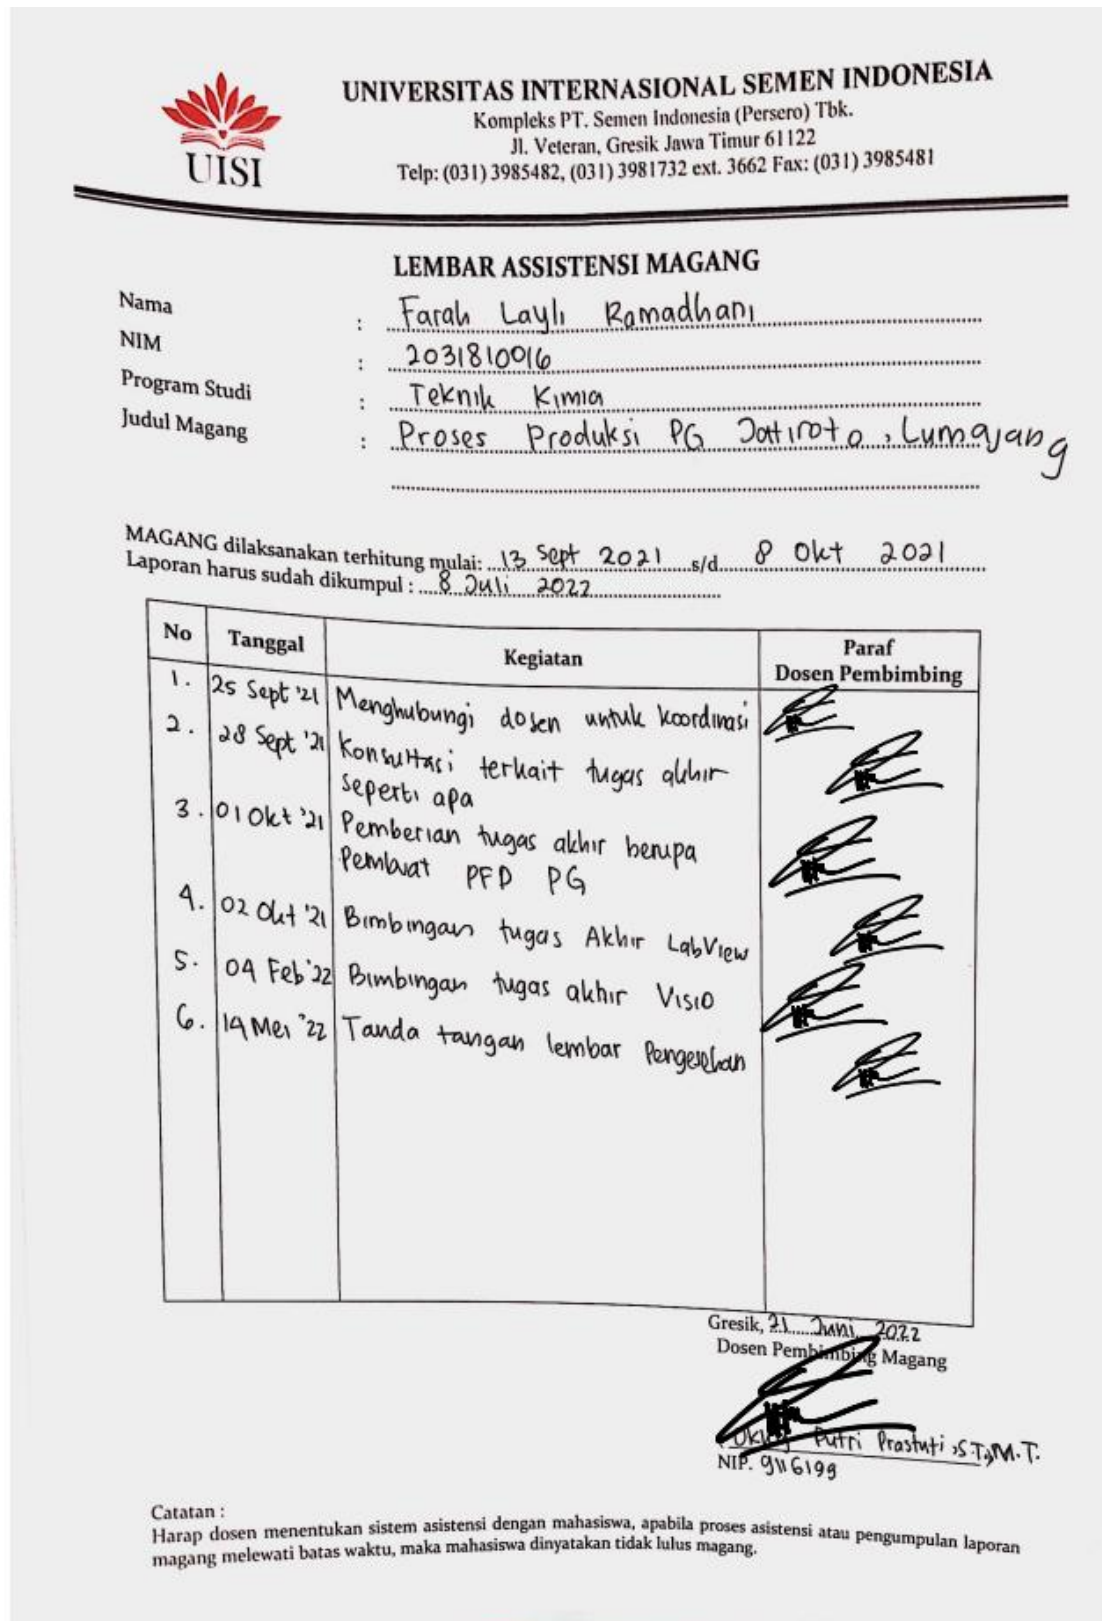 UISI
UNIVERSITAS INTERNASIONAL SEMEN INDONESIA
Kompleks PT. Semen Indonesia (Persero) Tbk.
Jl. Veteran, Gresik Jawa Timur 61122
Telp: (031) 3985482, (031) 3981732 ext. 3662 Fax: (031) 3985481
LEMBAR ASSISTENSI MAGANG
Nama : Farah Layli Ramadhani
NIM : 2031810016
Program Studi : Teknik Kimia
Judul Magang : Proses Produksi PG Jatiroto, Lumajang
MAGANG dilaksanakan terhitung mulai: 13 Sept 2021 s/d 8 Okt 2021
Laporan harus sudah dikumpul : 8 Juli 2022
No Tanggal Kegiatan Paraf Dosen Pembimbing
1. 25 Sept '21 Menghubungi dosen untuk koordinasi
2. 28 Sept '21 Konsultasi terkait tugas akhir
seperti apa
3. 01 Okt '21 Pemberian tugas akhir berupa
Pembuat PFD PG
4. 02 Okt '21 Bimbingan tugas Akhir LabView
5. 04 Feb '22 Bimbingan tugas akhir Visio
6. 14 Mei '22 Tanda tangan lembar Pengesahan
Gresik, 21 Juni 2022
Dosen Pembimbing Magang
Putri Prastuti, S.T., M.T.
NIP. 9116199
Catatan :
Harap dosen menentukan sistem asistensi dengan mahasiswa, apabila proses asistensi atau pengumpulan laporan
magang melewati batas waktu, maka mahasiswa dinyatakan tidak lulus magang.